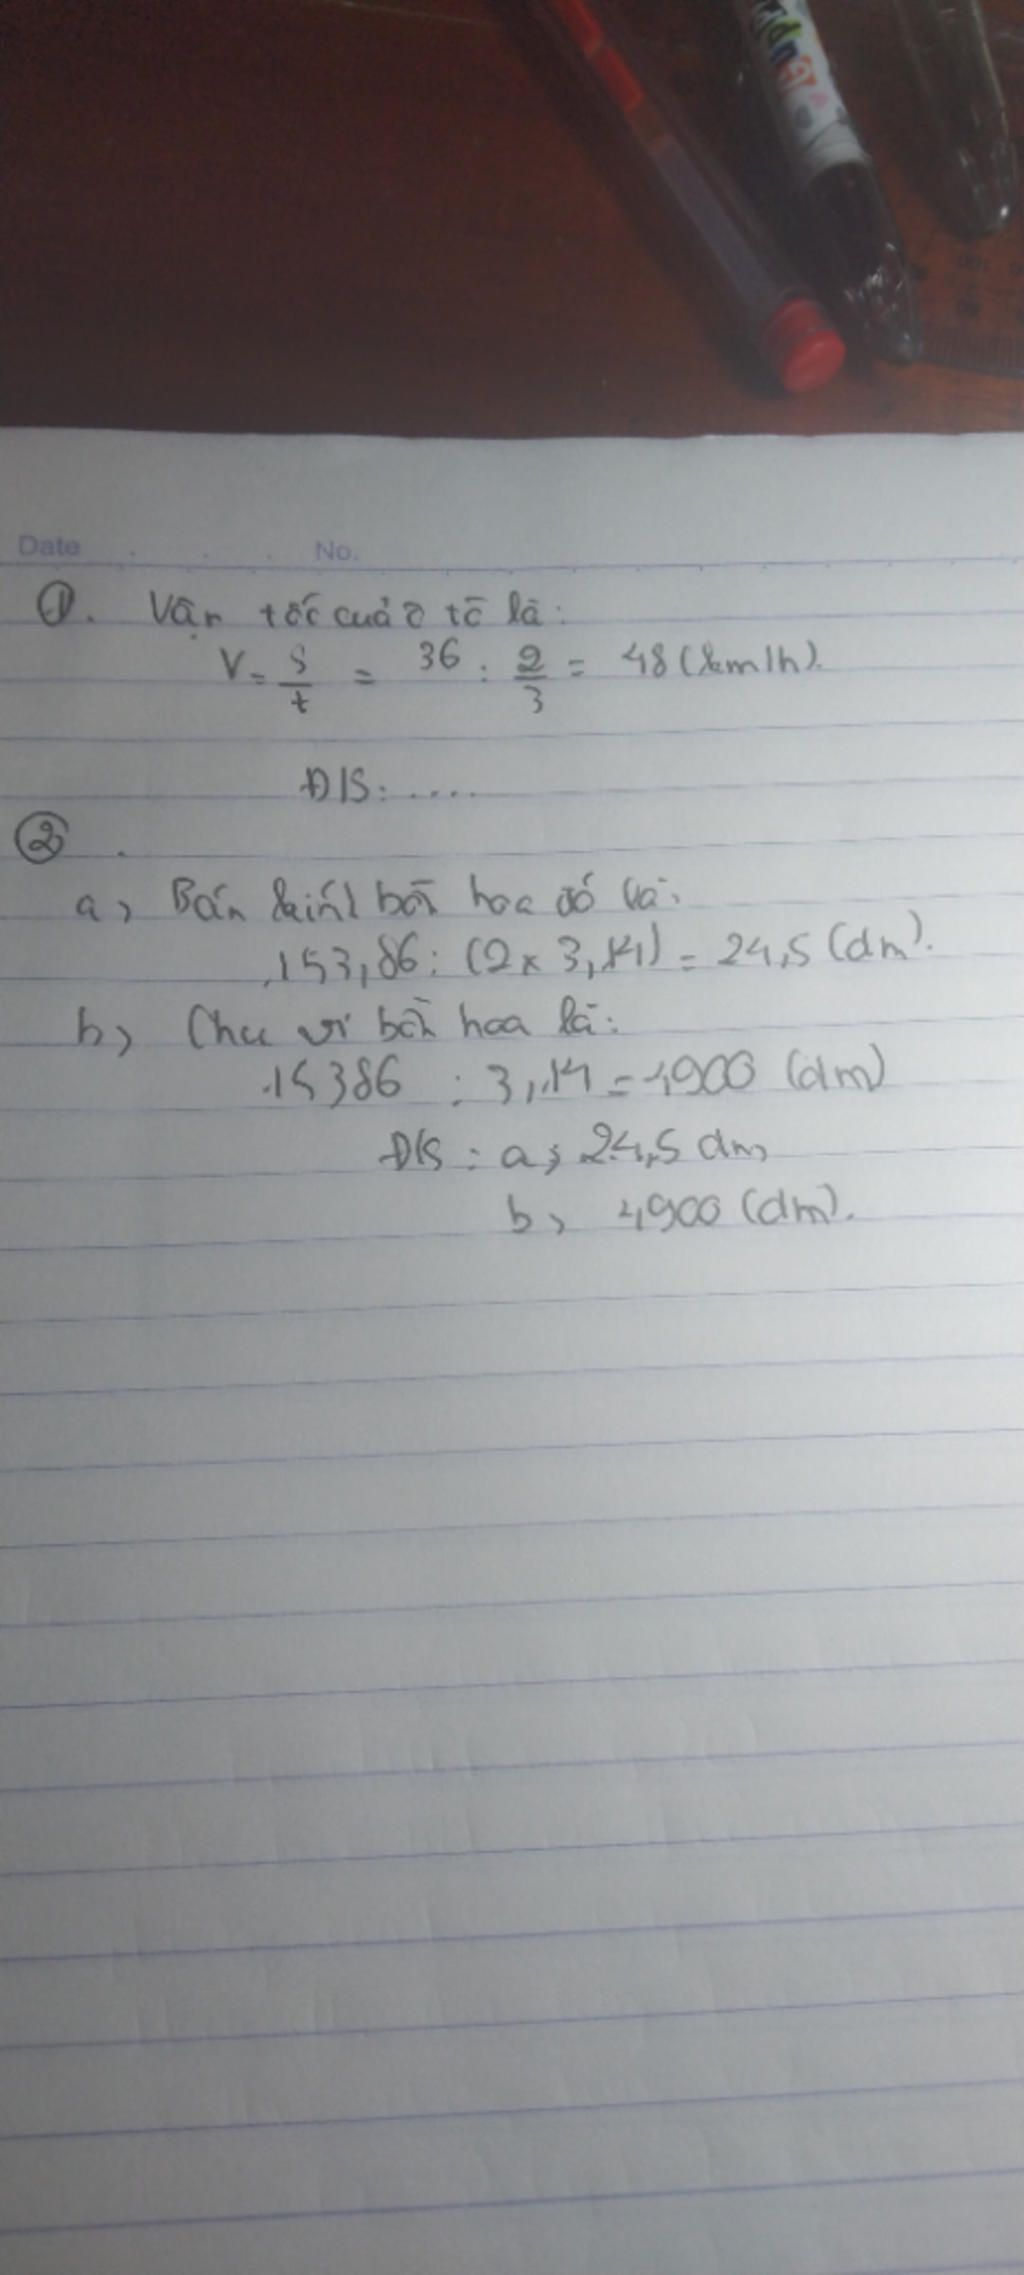 Date No.
①. Vận tốc cuả ô tô là:
V = S/t = 36 : 2/3 = 48 (km/h).
Đ/S: ....
②.
a, Bán kính bồn hoa đó là:
153,86 : (2 x 3,14) = 24,5 (dm).
b, Chu vi bồn hoa là:
15386 : 3,14 = 4900 (dm)
Đ/S : a, 24,5 dm
b, 4900 (dm).